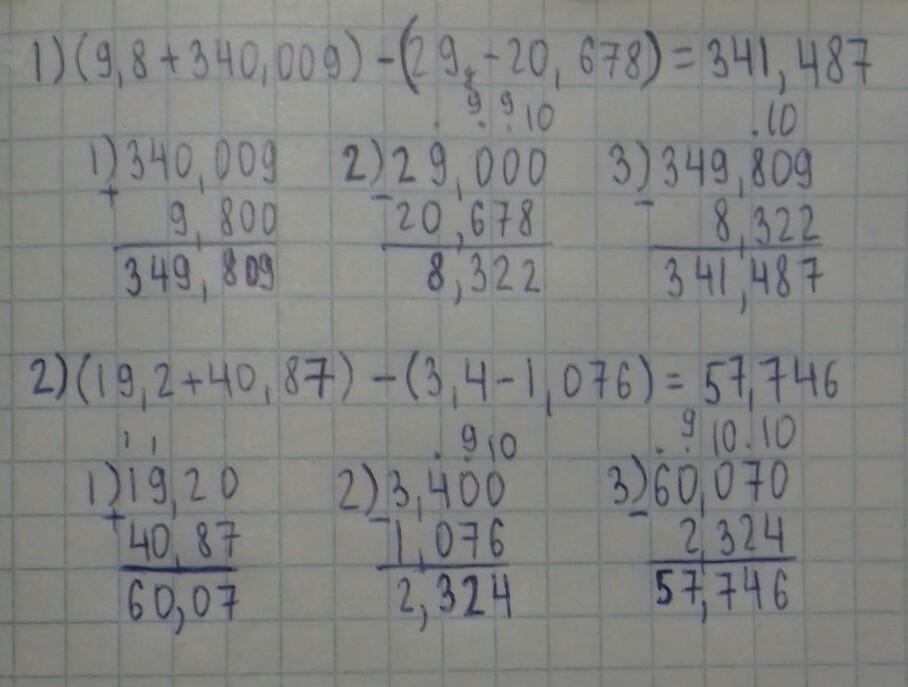 1) (9,8 + 340,009) - (29, - 20, 678) = 341, 487
. 9 . 9 . 10 . 10
1) 340,009 2) 29,000 3) 349,809
+ 9,800 - 20,678 - 8,322
349,809 8,322 341,487
2) (19,2 + 40,87) - (3,4 - 1,076) = 57,746
1 1 . 9 . 10 . 9 . 10 . 10
1) 19,20 2) 3,400 3) 60,070
+ 40,87 - 1,076 - 2,324
60,07 2,324 57,746